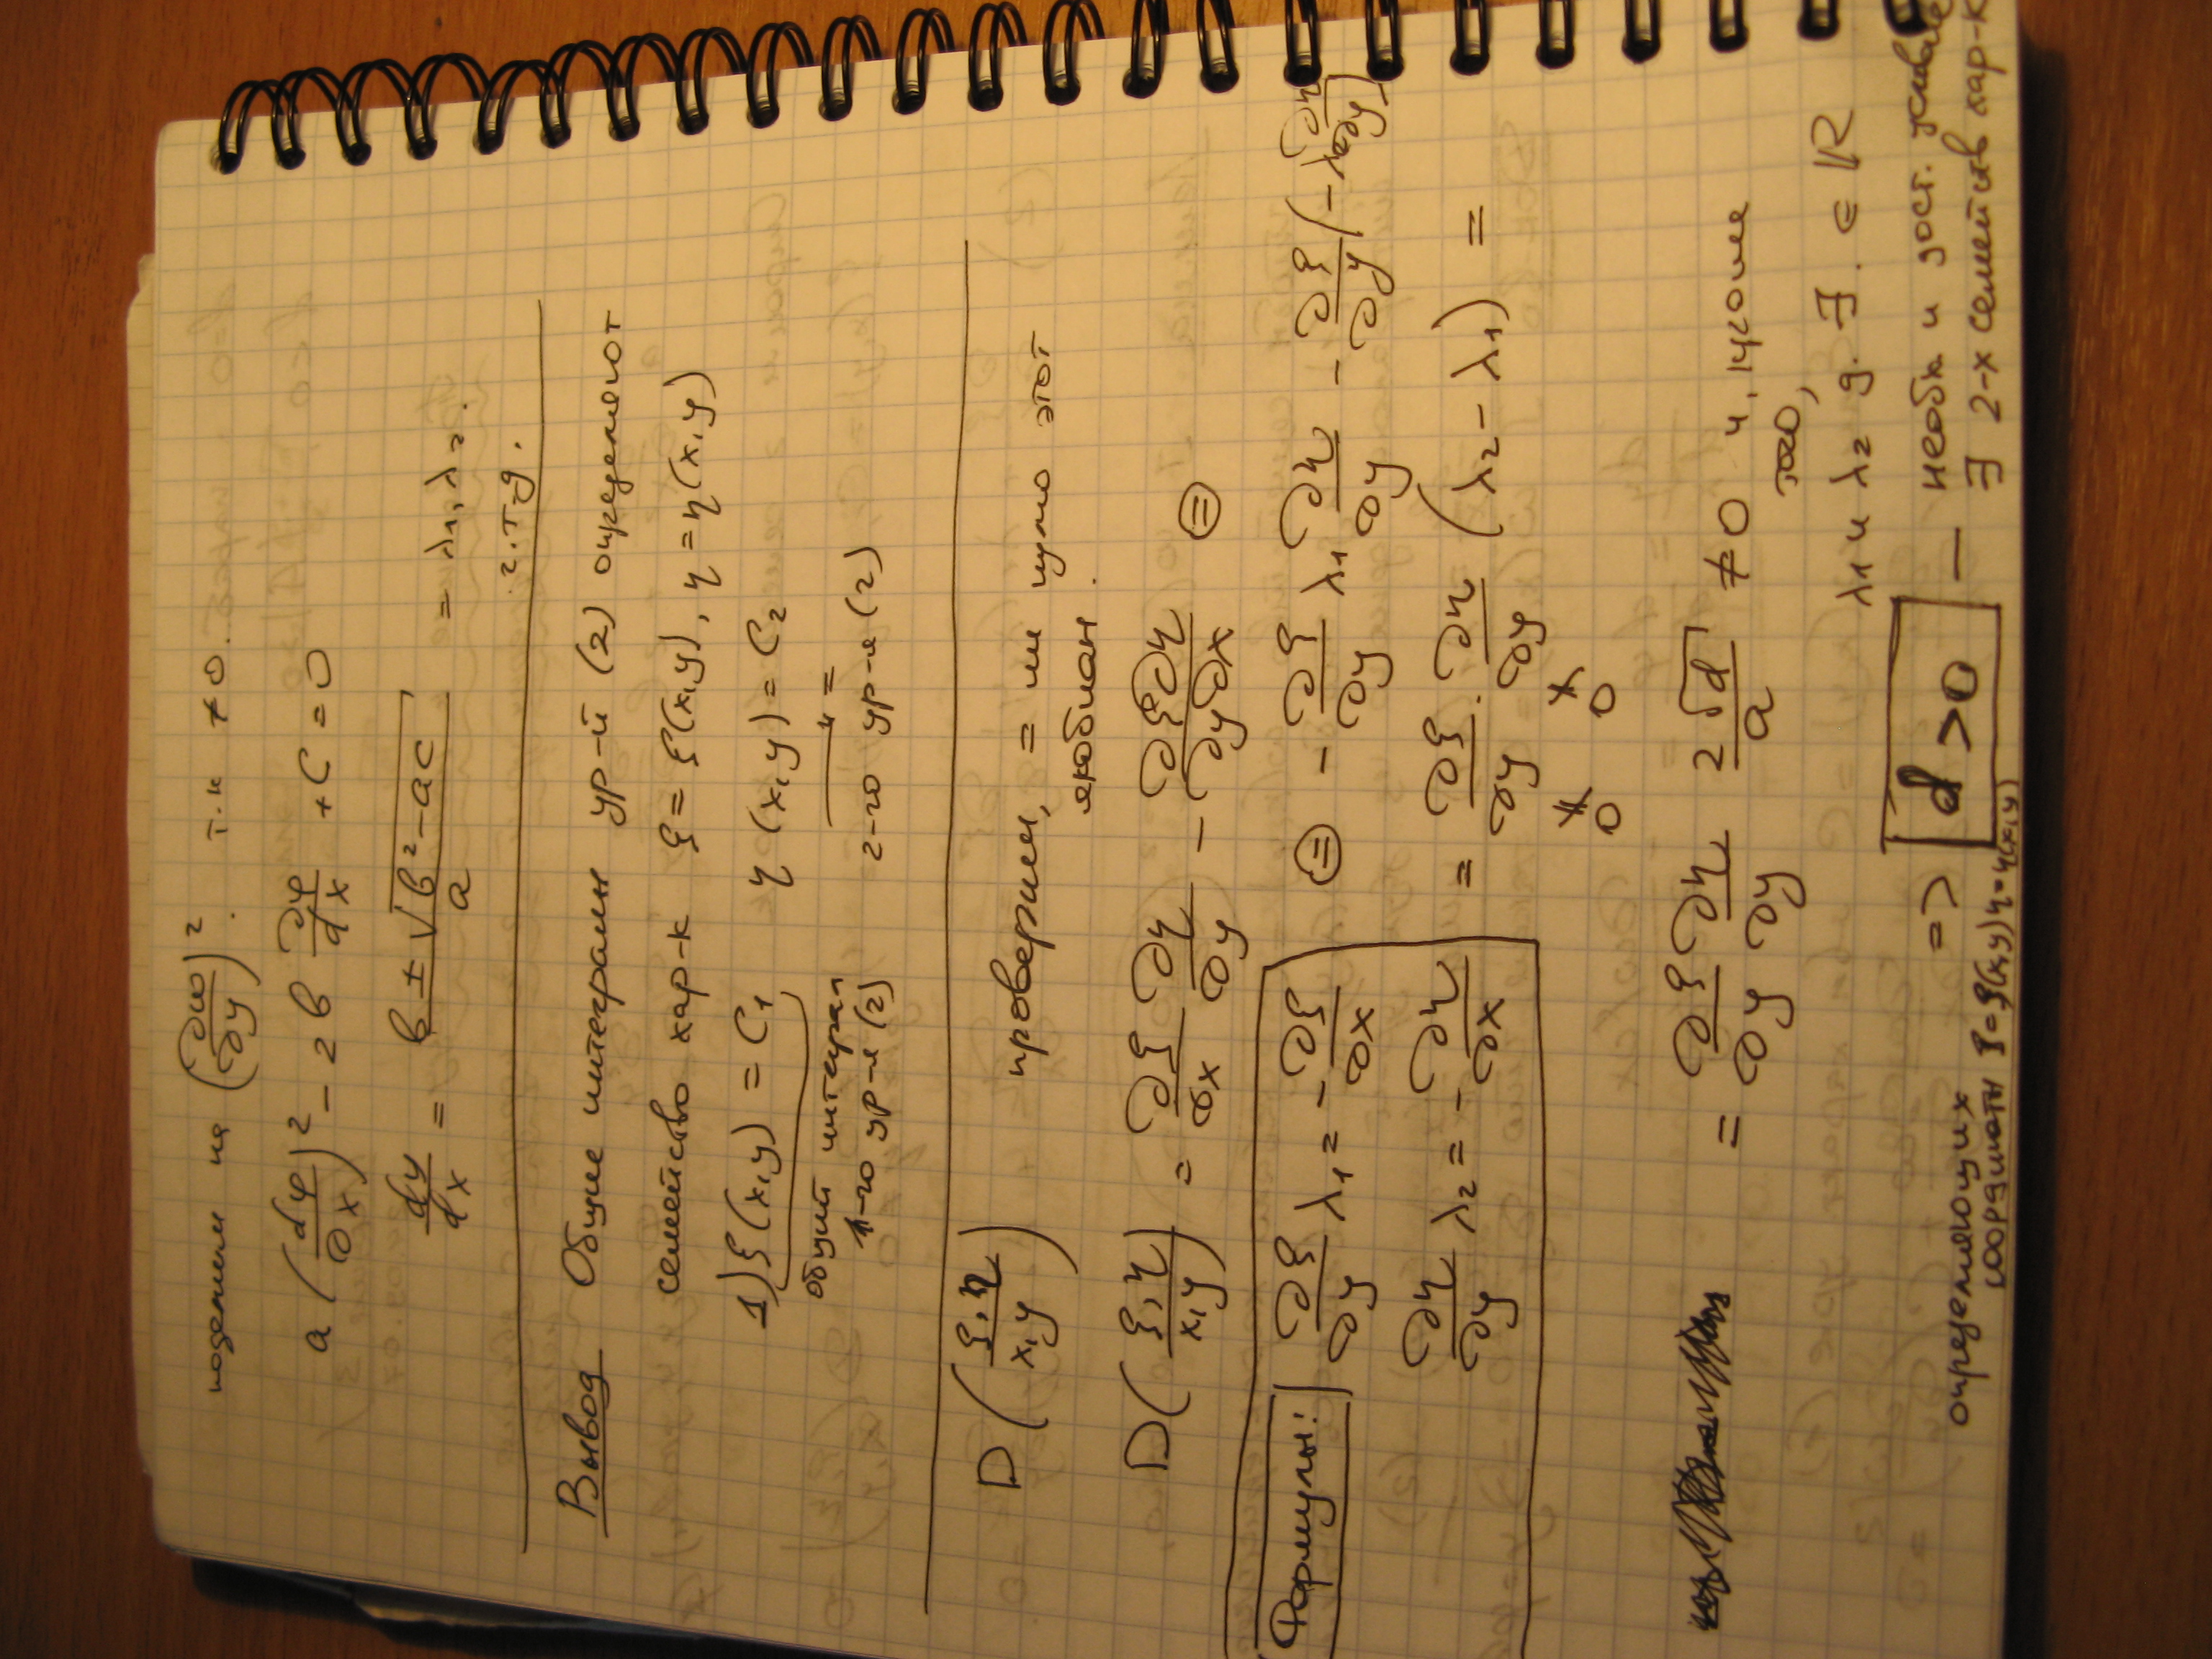 поделим на (∂ω/∂y)². т.к ≠ 0.
a (dφ/∂x)² - 2b ∂φ/dx + C = 0
dy/dx = b ± √(b² - ac) / a = λ₁, λ₂.
ч.т.д.
Вывод Общие интегралы ур-й (2) определяют
семейство хар-к ξ = ξ(x,y), η = η(x,y)
1) ξ(x,y) = C₁ η(x,y) = C₂
общий интеграл —"=
1-го ур-я (2) 2-го ур-я (2)
D(ξ,η / x,y) проверим, = ли нулю этот
якобиан.
D(ξ,η / x,y) = ∂ξ/∂x ∂η/∂y - ∂ξ∂η/∂y∂x ⊜
Формулы: ∂ξ/∂y λ₁ = - ∂ξ/∂x ⊜ - ∂ξ/∂y λ₁ ∂η/∂y - ∂ξ/∂y (-λ₂ ∂η/∂y)
∂η/∂y λ₂ = - ∂η/∂x = ∂ξ/∂y · ∂η/∂y (λ₂ - λ₁) =
≠ 0 ≠ 0
= ∂ξ/∂y ∂η/∂y 2√d/a ≠ 0
того,
λ₁ и λ₂ д. ∃. ∈ ℝ
=> d > 0 — необх и дост.
∃ 2-х семейств хар-к
определяющих
координаты ξ=ξ(x,y) η=η(x,y)